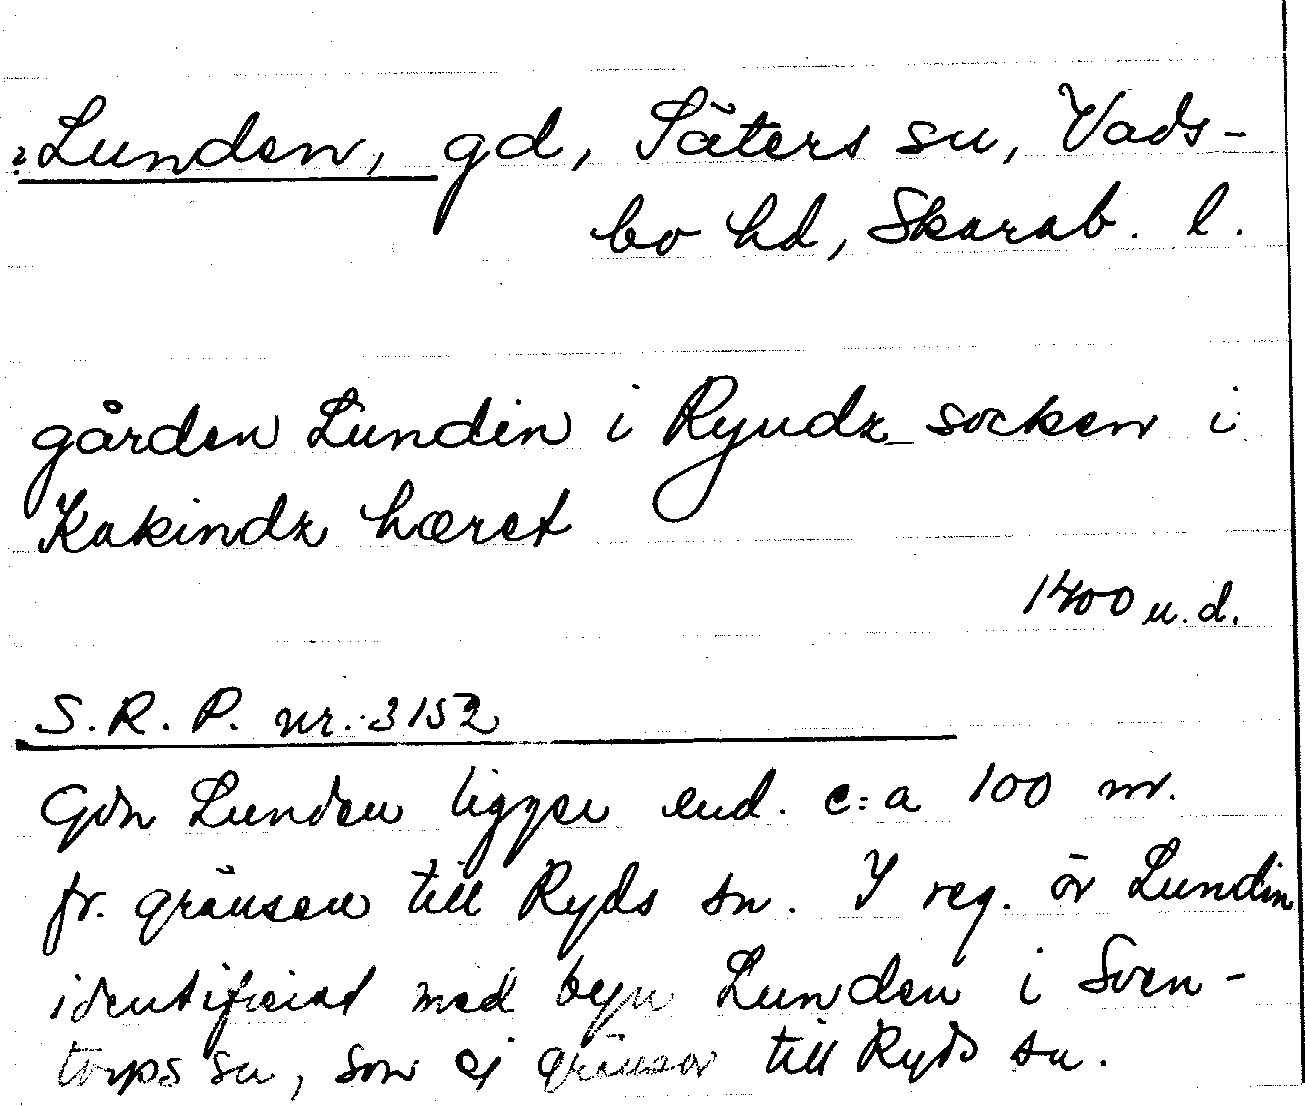 ? Lunden, gd, Säters sn, Vads-
bo hd, Skarab. l.
gården Lundin i Ryudz socken i
Kakindz hæret
1400 u. d.
S. R. P. nr. 3152
Gdn Lunden ligger end. c:a 100 m.
fr. gränsen till Ryds sn. I reg. är Lundin
identifierat med byn Lunden i Sven-
torps sn, som ej gränsar till Ryds sn.